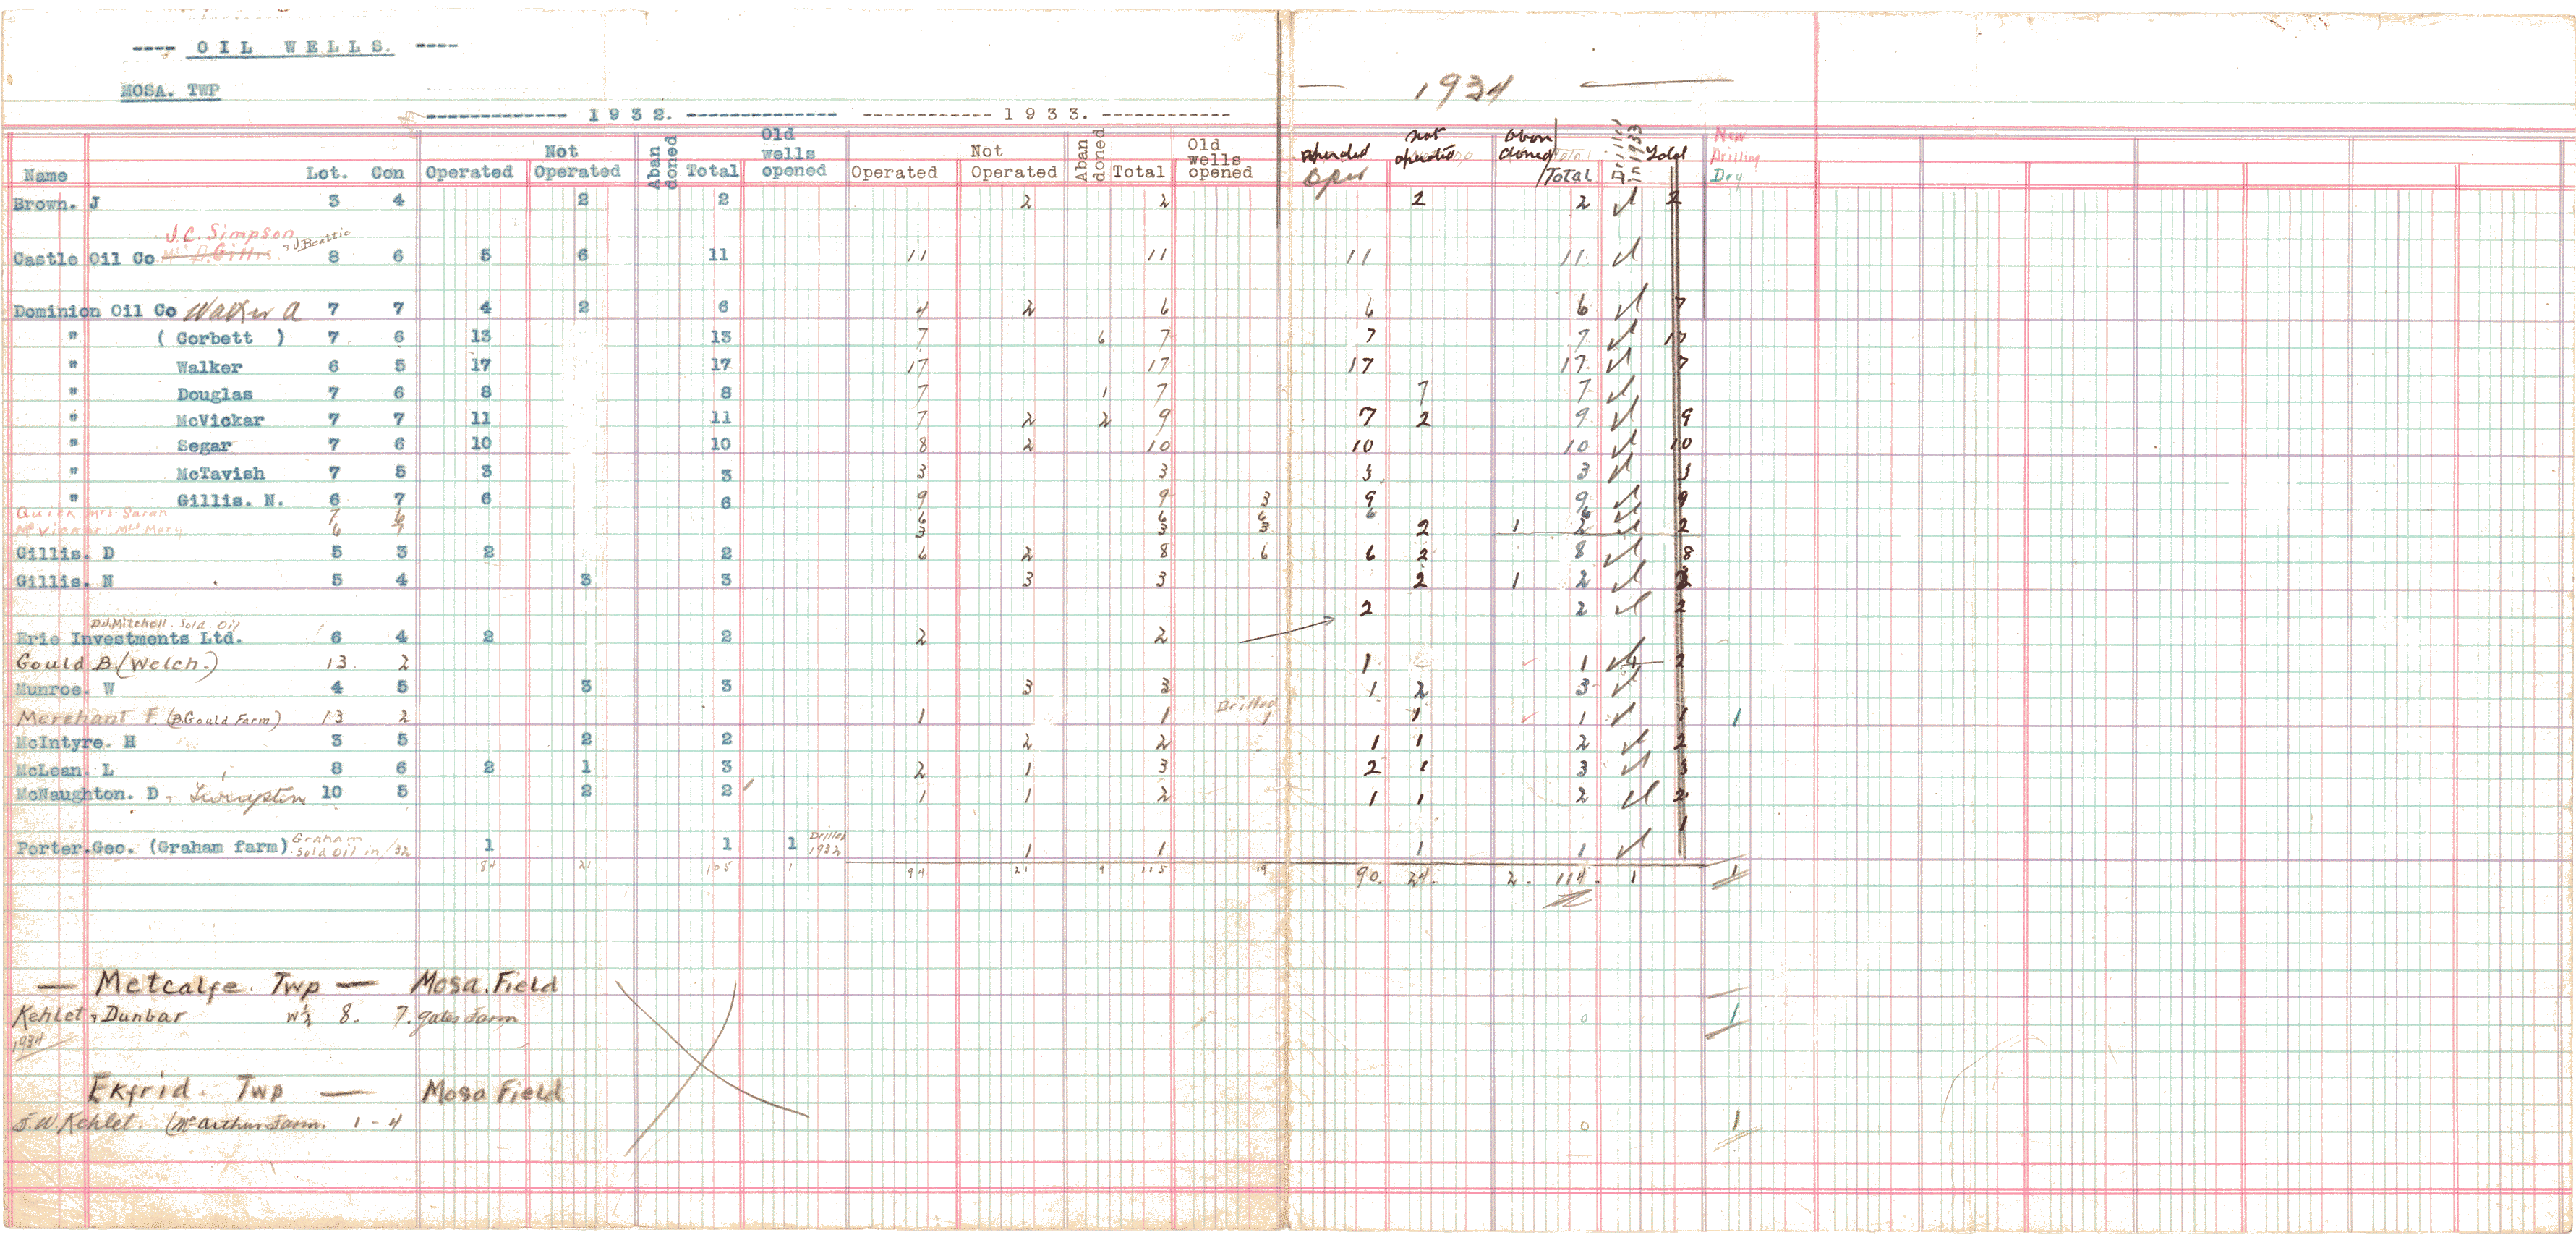 ---- OIL WELLS. ----
— 1934 —
MOSA. TWP
------------- 1 9 3 2. -------------- ------------ 1 9 3 3. ------------
Name Lot. Con Operated Not Operated Aban doned Total Old wells opened Operated Not Operated Aban doned Total Old wells opened Oper Not operated Aban doned Total Drilled in 1933 Total New Drilling Dry
Brown. J 3 4 2 2 2 2 2 2 ✓ 2
J.C. Simpson & J. Beattie
Castle Oil Co D. Gillis. 8 6 5 6 11 11 11 11 11 ✓
Dominion Oil Co Walker A 7 7 4 2 6 4 2 6 6 6 ✓ 7
" ( Corbett ) 7 6 13 13 7 6 7 7 7 ✓ 17
" Walker 6 5 17 17 17 17 17 17 ✓ 7
" Douglas 7 6 8 8 7 1 7 7 7 ✓
" McVickar 7 7 11 11 7 2 2 9 7 2 9 ✓ 9
" Segar 7 6 10 10 8 2 10 10 10 ✓ 10
" McTavish 7 5 3 3 3 3 3 3 ✓ 3
" Gillis. N. 6 7 6 6 9 9 3 9 9 ✓ 9
Quick. Mrs. Sarah 7 6 6 6 6 6 6 ✓
McVicker. Mrs Mary 6 7 3 3 3 2 1 2 ✓ 2
Gillis. D 5 3 2 2 6 2 8 6 6 2 8 ✓ 8
Gillis. N 5 4 3 3 3 3 2 1 2 ✓ 2
2 2 ✓ 2
D.J. Mitchell. Sold. Oil
Erie Investments Ltd. 6 4 2 2 2 2
Gould B. (Welch.) 13 2 1 1 ✓ 2
Munroe. W 4 5 3 3 3 3 1 2 3 ✓
Merchant F. (B. Gould Farm) 13 2 1 1 Drilled 1 1 1 ✓ 1 1
McIntyre. H 3 5 2 2 2 2 1 1 2 ✓ 2
McLean. L 8 6 2 1 3 2 1 3 2 1 3 ✓ 3
McNaughton. D 10 5 2 2 1 1 2 1 1 2 ✓ 2
1
Porter.Geo. (Graham farm). Graham Sold Oil in /32 1 1 1 Drilled 1932 1 1 1 1 ✓
84 21 105 1 94 21 9 115 19 90. 24. 2. 114. 1 1
— Metcalfe. Twp — Mosa. Field
Kehlet & Dunbar W½ 8. 7. Gates Farm 0 1
1934
Ekfrid. Twp — Mosa Field
J.W. Kehlet. (McArthur Farm. 1 - 4 0 1